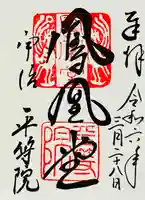 奉拝
令和六年
三月二十八日
鳳凰堂
宇治
平等院